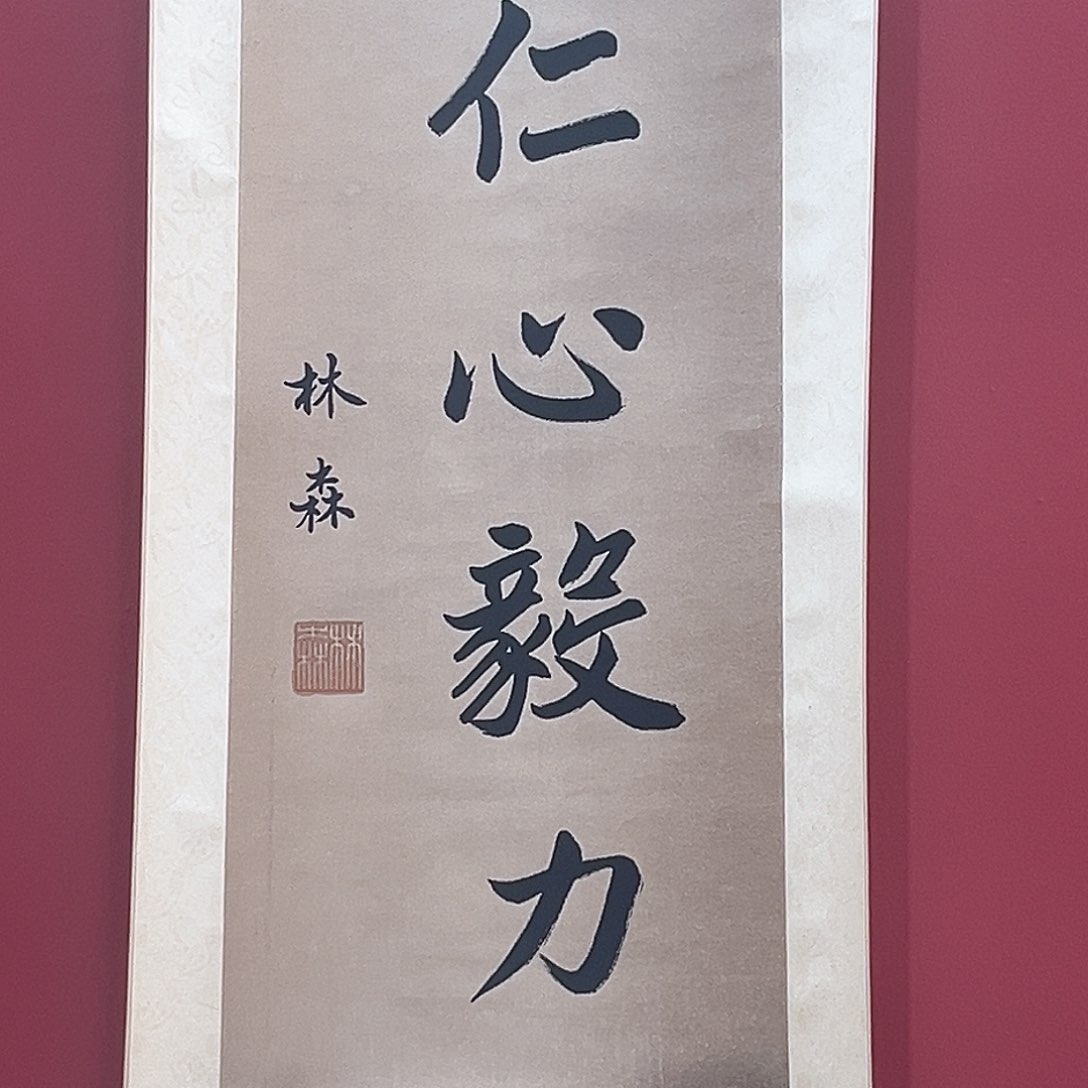 仁心毅力
林森
林森